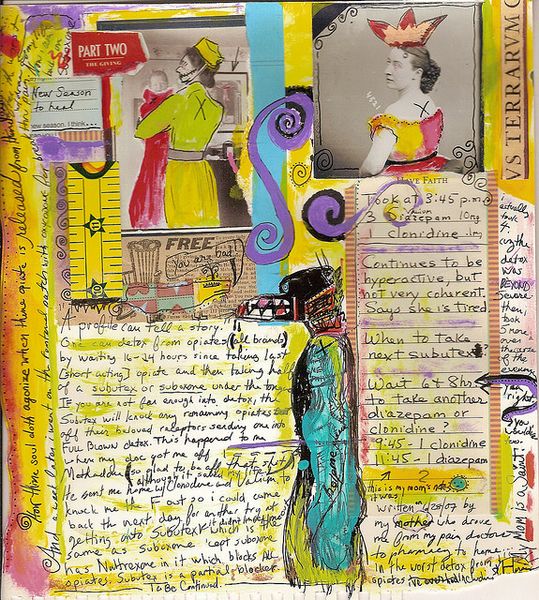 PART TWO
THE GIVING
New Season
to heal
new season. i think...
FREE
You are bad
4321
HAVE FAITH
VS TERRARVM O
took at 3:45 p.m.
3 Diazepam 10mg
Valium
1 clonidine .1mg
Continues to be
hyperactive, but
not very coherent.
Says she is tired
When to take
next subutex?
Wait 6 to 8 hrs
to take another
diazepam or
clonidine?
9:45 - 1 clonidine
11:45 - 1 diazepam
2
i
actually
took
4
cuz the
detox
was
BEYOND
Severe
then i
took
5 more
over
the
of the
evening
yea
right
you
would
too
this is my mom's
it was
written 4/28/07 by
my mother who drove
me from my pain doctors
to pharmacy to home
in the worst detox from
opiates
My Mom is a
A profile can tell a story.
One can detox from opiates (all brands)
by waiting 16-24 hours since taking last
(short acting) opiate and then taking half
of a subutex or suboxone under the tongue
If you are not far enough into detox, the
Subutex will knock any remaining opiates
off their beloved receptors sending one into
FULL BLOWN detox. This happened to me
when my doc got me off
Methadone (so glad to be off that shit
He sent me home w/ Clonidine and Valium to
knock me the F out so i could come
back the next day for another try at
getting onto Subutex which is the
same as Suboxone cept suboxone
has Naltrexone in it which blocks All
opiates. Subutex is a partial blocker.
To Be Continued.
How thine soul doth agonize when thine opiate is released from
And a week later i went on the Fentanyl patch with